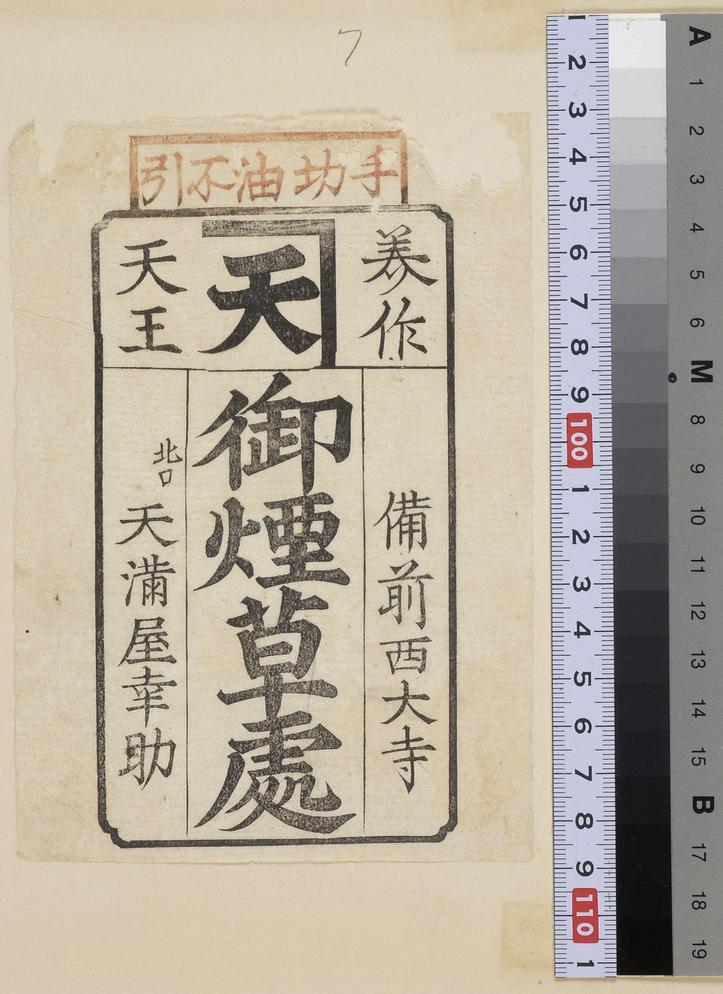 7
手切油不引
美作
天
天王
備前西大寺
御煙草處
北口
天満屋幸助
1 2 3 4 5 6 7 8 9 100 1 2 3 4 5 6 7 8 9 110 1
A 1 2 3 4 5 6 M 8 9 10 11 12 13 14 15 B 17 18 19